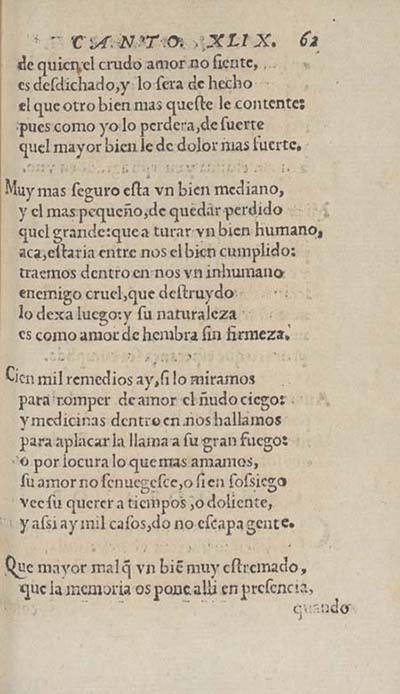 CANTO. XLIX. 62
de quien el crudo amor no siente,
es desdichado, y lo sera de hecho
el que otro bien mas queste le contente:
pues como yo lo perdera, de suerte
quel mayor bien le de dolor mas fuerte.
Muy mas seguro esta vn bien mediano,
y el mas pequeño, de quedar perdido
quel grande: que a turar vn bien humano,
aca, estaria entre nos el bien cumplido:
traemos dentro en nos vn inhumano
enemigo cruel, que destruydo
lo dexa luego: y su naturaleza
es como amor de hembra sin firmeza.
Cien mil remedios ay, si lo miramos
para romper de amor el ñudo ciego:
y medicinas dentro en nos hallamos
para aplacar la llama a su gran fuego:
o por locura lo que mas amamos,
su amor no senuegesce, o si en sossiego
vee su querer a tiempos, o doliente,
y assi ay mil casos, do no escapa gente.
Que mayor mal q̃ vn biẽ muy estremado,
que la memoria os pone alli en presencia,
quando